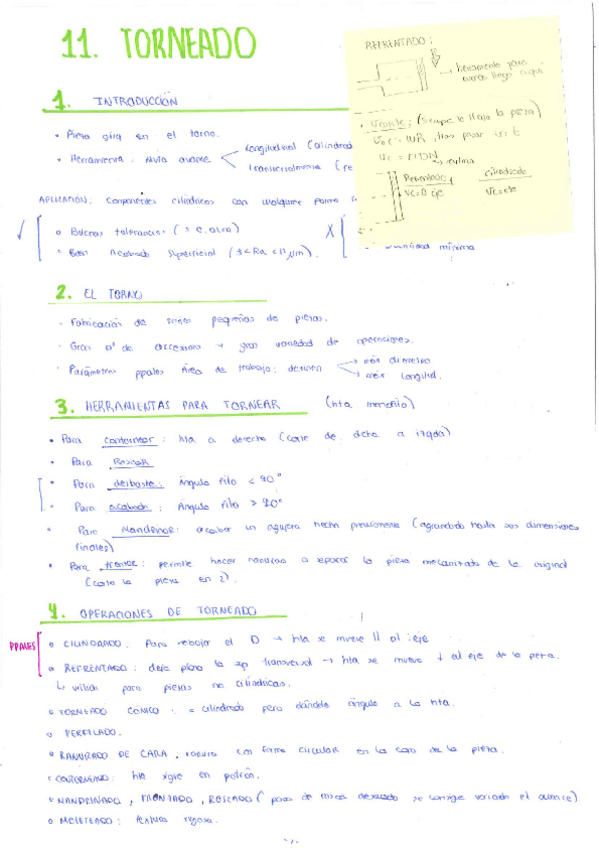 11. TORNEADO
REFRENTADO:
herramienta para
cuando llega aquí
1. INTRODUCCIÓN
• Pieza gira en el torno.
• Herramienta: Mvto avance
Longitudinal (cilindrad
transversalmente (re
• Vcorte: (siempre la lleva la pieza)
Voc = WR, hay pasar
Vc = πDN
Refrentado
Vc=0 eje
Cilindrado
Vc=cte
APLICACIÓN: Componentes cilíndricos con cualquier forma
• Buenas tolerancias
• Buen Acabado Superficial
mínima
2. EL TORNO
· Fabricación de series pequeñas de piezas.
· Gran nº de accesorios → gran variedad de operaciones.
· Parámetros ppales Área de trabajo: definen
máx diámetro
máx longitud.
3. HERRAMIENTAS PARA TORNEAR (hta monofilo)
• Para contornear: hta a derecha (corte de dcha a izqda)
• Para Roscar
• Para desbaste: ángulo filo < 90°
• Para acabado: Ángulo filo > 90°
• Para Mandrinar: acabar un agujero hecho previamente (agrandado hasta sus dimensiones
finales)
• Para tronzar: permite hacer ranuras o separar la pieza mecanizada de la original
(corta la pieza en 2).
4. OPERACIONES DE TORNEADO
PPALES
• CILINDRADO: Para rebajar el D → hta se mueve || al eje
• REFRENTADO: deja plana la sp transversal → hta se mueve ⊥ al eje de la pieza.
↳ para piezas no cilíndricas.
• TORNEADO CÓNICO: = cilindrado pero dándole ángulo a la hta.
• PERFILADO.
• RANURADO DE CARA, ranura con forma circular en la cara de la pieza.
• CONTORNEADO: hta sigue un patrón.
• MANDRINADO, TRONZADO, ROSCADO (paso de rosca deseado se consigue variando el avance)
• MOLETEADO: textura rugosa.
-1-